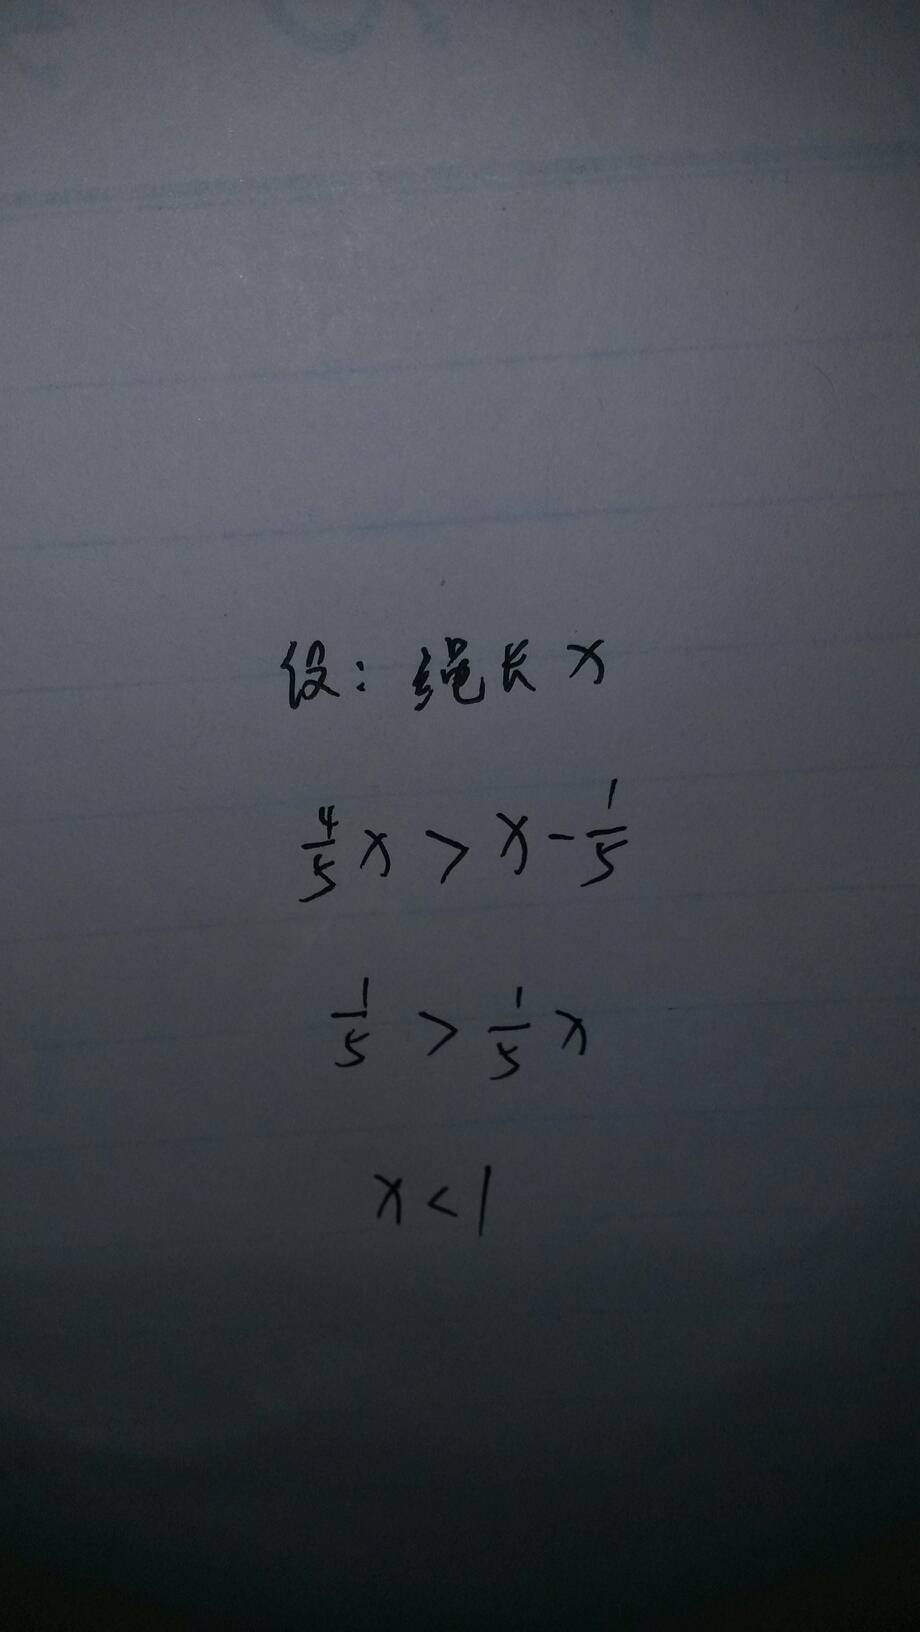 设：绳长 x
4/5 x > x - 1/5
1/5 > 1/5 x
x < 1